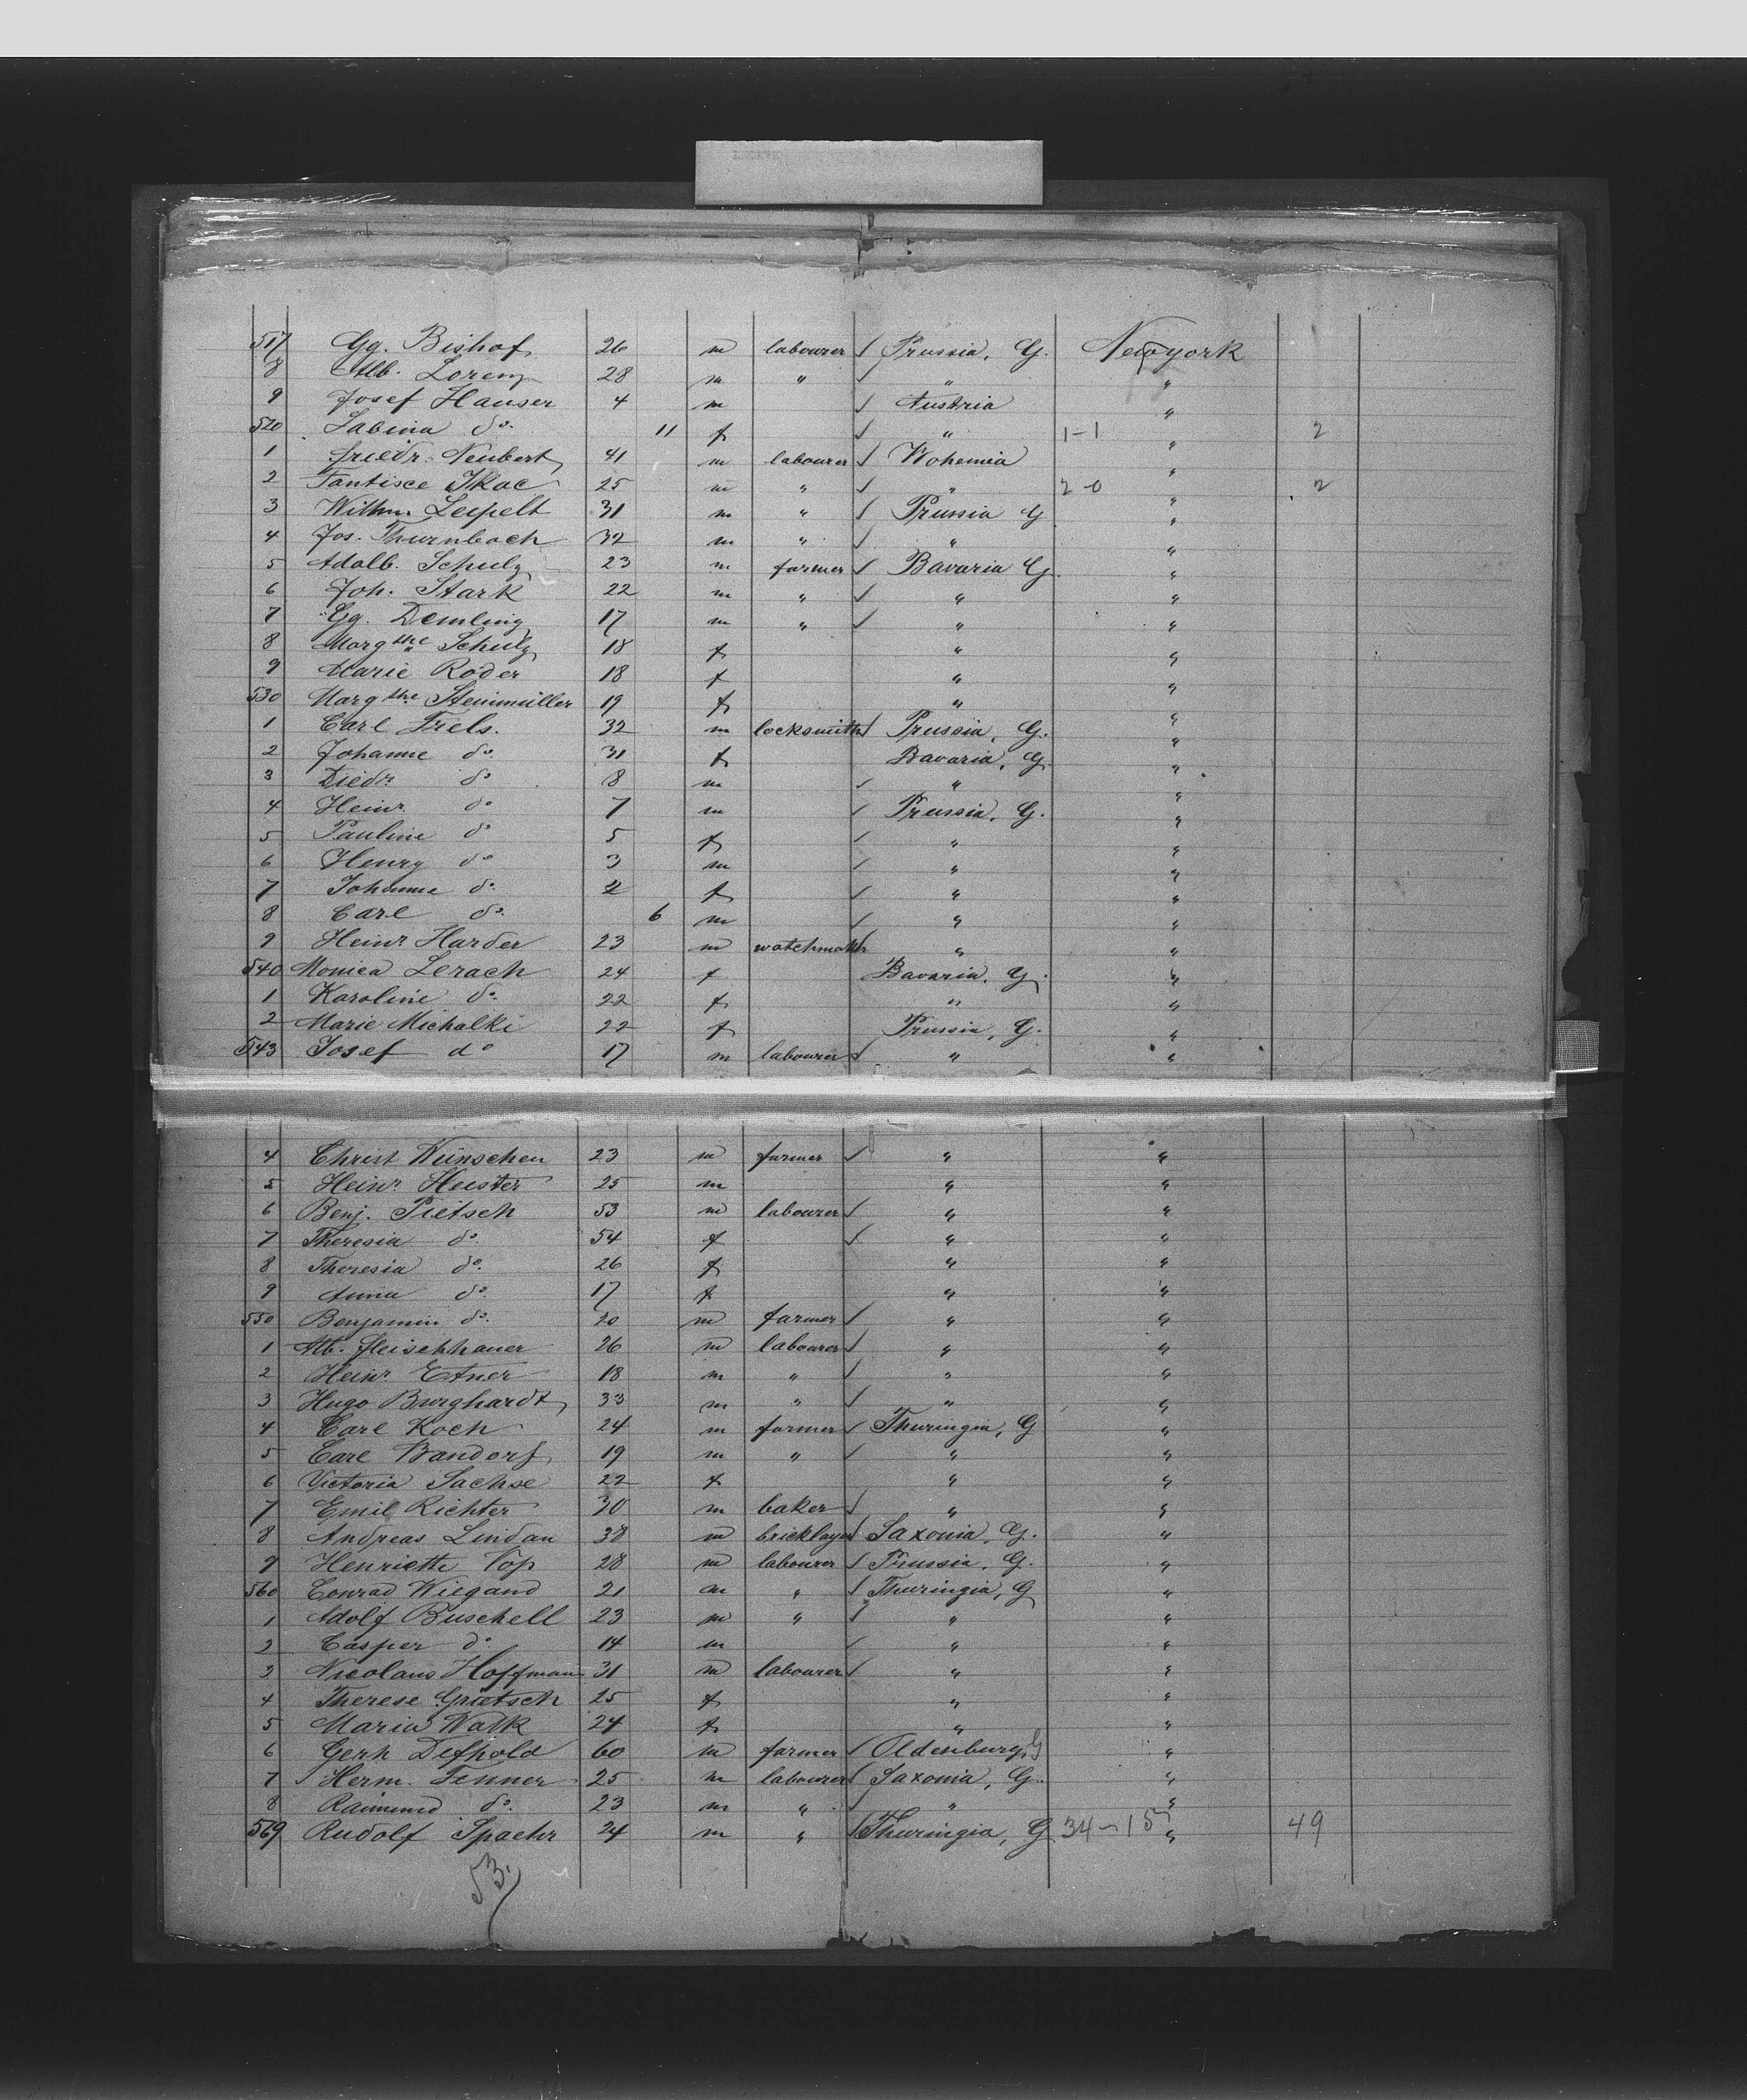 517 Gg. Bishof 26 m labourer √ Prussia, G. Newyork
8 Alb. Lorenz 28 m " √ " "
9 Josef Hauser 4 m √ Austria "
520 Sabina do. 11 f √ " 1-1 " 2
1 Friedr. Neubert 41 m labourer √ Bohemia "
2 Tantisce Skac 25 m " √ " 2-0 " 2
3 Wilhm. Leipelt 31 m " √ Prussia G "
4 Jos. Thurnbach 32 m " √ " "
5 Adalb. Schulz 23 m farmer √ Bavaria G. "
6 Joh. Stark 22 m " √ " "
7 Gg. Demling 17 m " √ " "
8 Margthe Schulz 18 f " "
9 Marie Roder 18 f " "
530 Margthe Steinmüller 19 f " "
1 Carl Frels. 32 m locksmith √ Prussia, G. "
2 Johanne do. 31 f Bavaria, G. "
3 Diedr. do 8 m √ " "
4 Heinr. do 7 m √ Prussia, G. "
5 Pauline do 5 f √ " "
6 Henry do 3 m √ " "
7 Johanne do. 2 f √ " "
8 Carl do. 6 m √ " "
9 Heinr Harder 23 m watchmakr √ " "
540 Monica Lerach 24 f Bavaria, G. "
1 Karoline do. 22 f " "
2 Marie Michalki 22 f Prussia, G. "
543 Josef do 17 m labourer √ " "
4 Christ Wünschen 23 m farmer √ " "
5 Heinr. Heister 25 m " "
6 Benj. Pietsch 53 m labourer √ " "
7 Theresia do. 54 f √ " "
8 Theresia do. 26 f " "
9 Anna do. 17 f " "
550 Benjamin do. 20 m farmer √ " "
1 Alb. Fleischhauer 26 m labourer √ " "
2 Heinr. Etner 18 m " √ " "
3 Hugo Burghardt 33 m " √ " "
4 Carl Koch 24 m farmer √ Thuringia, G "
5 Carl Bandorf 19 m " √ " "
6 Victoria Sachse 22 f " "
7 Emil Richter 30 m baker √ " "
8 Andreas Lindau 38 m bricklayer √ Saxonia, G. "
9 Henriette 28 m labourer √ Prussia, G. "
560 Conrad Wiegand 21 m " √ Thuringia, G "
1 Adolf Buschell 23 m " √ " "
2 Casper do. 14 m √ " "
2 Nicolaus Hoffmann 31 m labourer √ " "
4 Therese Grietsch 25 f " "
5 Maria Walk 24 f " "
6 Gerh Defhold 60 m farmer √ Oldenburg, G "
7 Herm. Fenner 25 m labourer √ Saxonia, G. "
8 Raimund do. 23 m " √ " "
569 Rudolf Spaehr 24 m " √ Thuringia, G 34-15 " 49
53.